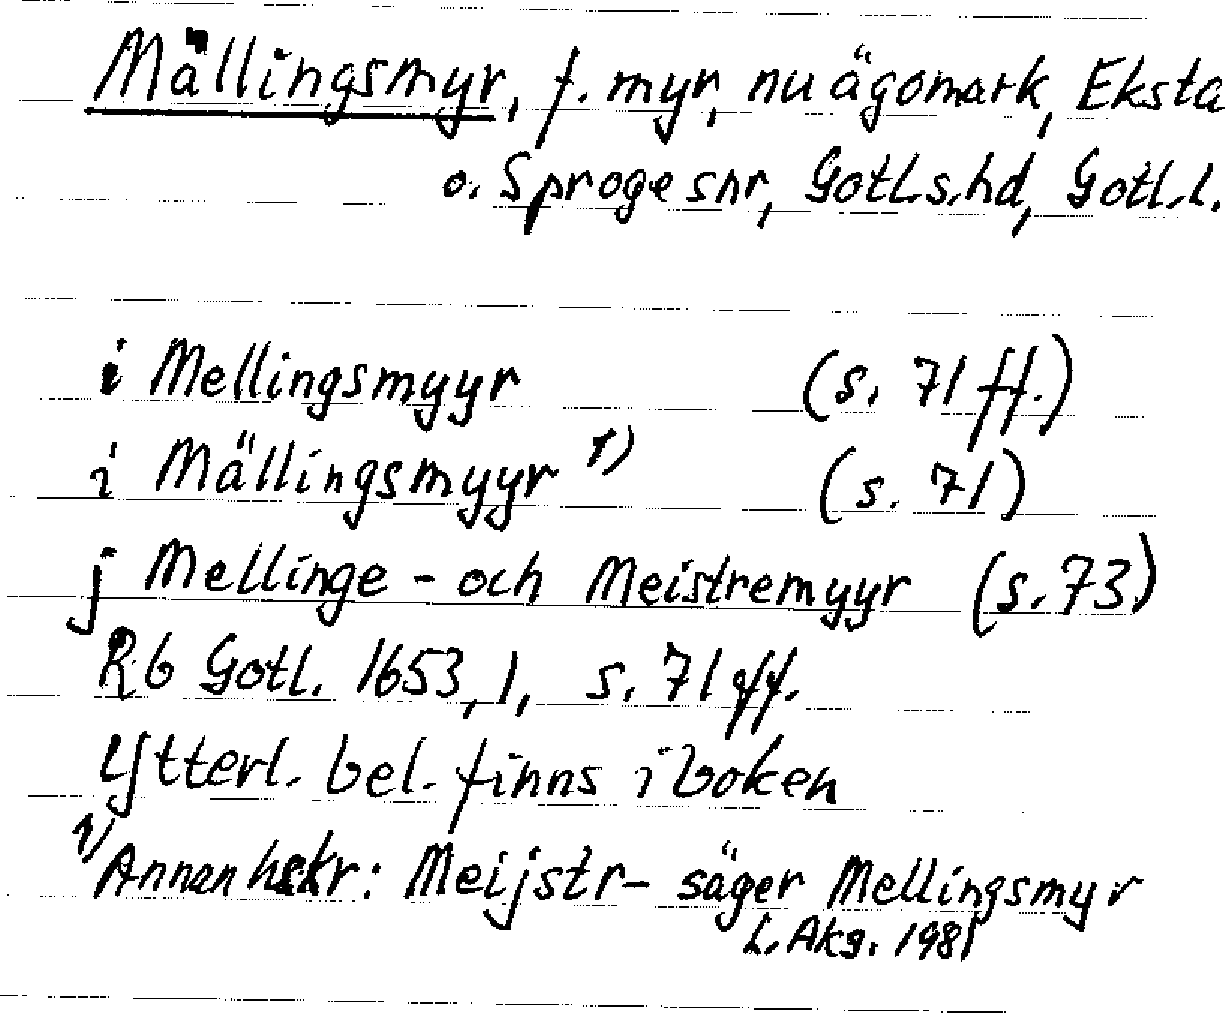 Mällingsmyr, f. myr, nu ägomark, Eksta
o. Sproge snr, Gotl.s.hd, Gotl.l.
i Mellingsmyyr (s. 71 ff.)
i Mällingsmyyr 1) (s. 71)
j Mellinge- och Meistremyyr (s. 73)
Rb Gotl. 1653, 1, s. 71 ff.
Ytterl. bel. finns i boken
1) Annan hskr: Meijstr- säger Mellingsmyr
L. Akg. 1981